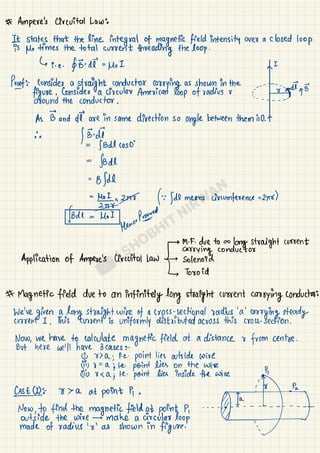 * Ampere's Circuital Law:
It states that the line integral of magnetic field intensity over a closed loop
is μ₀ times the total current threading the loop.
↳ i.e. ∮B⃗.dl⃗ = μ₀I
Proof: Consider a straight conductor carrying as shown in the
figure. Consider a circular Amperian loop of radius r
around the conductor.
I
r
dl⃗
B⃗
As B⃗ and dl⃗ are in same direction so angle between them is 0.
∴ ∫B⃗.dl⃗
= ∫Bdl cos0°
= ∫Bdl
= B∫dl
= μ₀I/2πr × 2πr (∵ ∫dl means circumference = 2πr)
∫Bdl = μ₀I
Hence Proved
SHOBHIT NIRWAN
Application of Ampere's Circuital Law
→ M.F. due to ∞ long straight current
carrying conductor
→ Solenoid
→ Toroid
* Magnetic field due to an infinitely long straight current carrying conductor:
We've given a long straight wire of a cross-sectional radius 'a' carrying steady
current I. This current is uniformly distributed across this cross-section.
Now, we have to calculate magnetic field at a distance r from centre.
But here we'll have 3 cases:-
(i) r>a; i.e. point lies outside wire
(ii) r=a; i.e. point lies on the wire
(iii) r<a; i.e. point lies inside the wire
Case (i): r>a at point P₁.
Now, to find the magnetic field at point P₁
outside the wire → make a circular loop
made of radius 'r' as shown in figure:
P₁
r
P₂
a